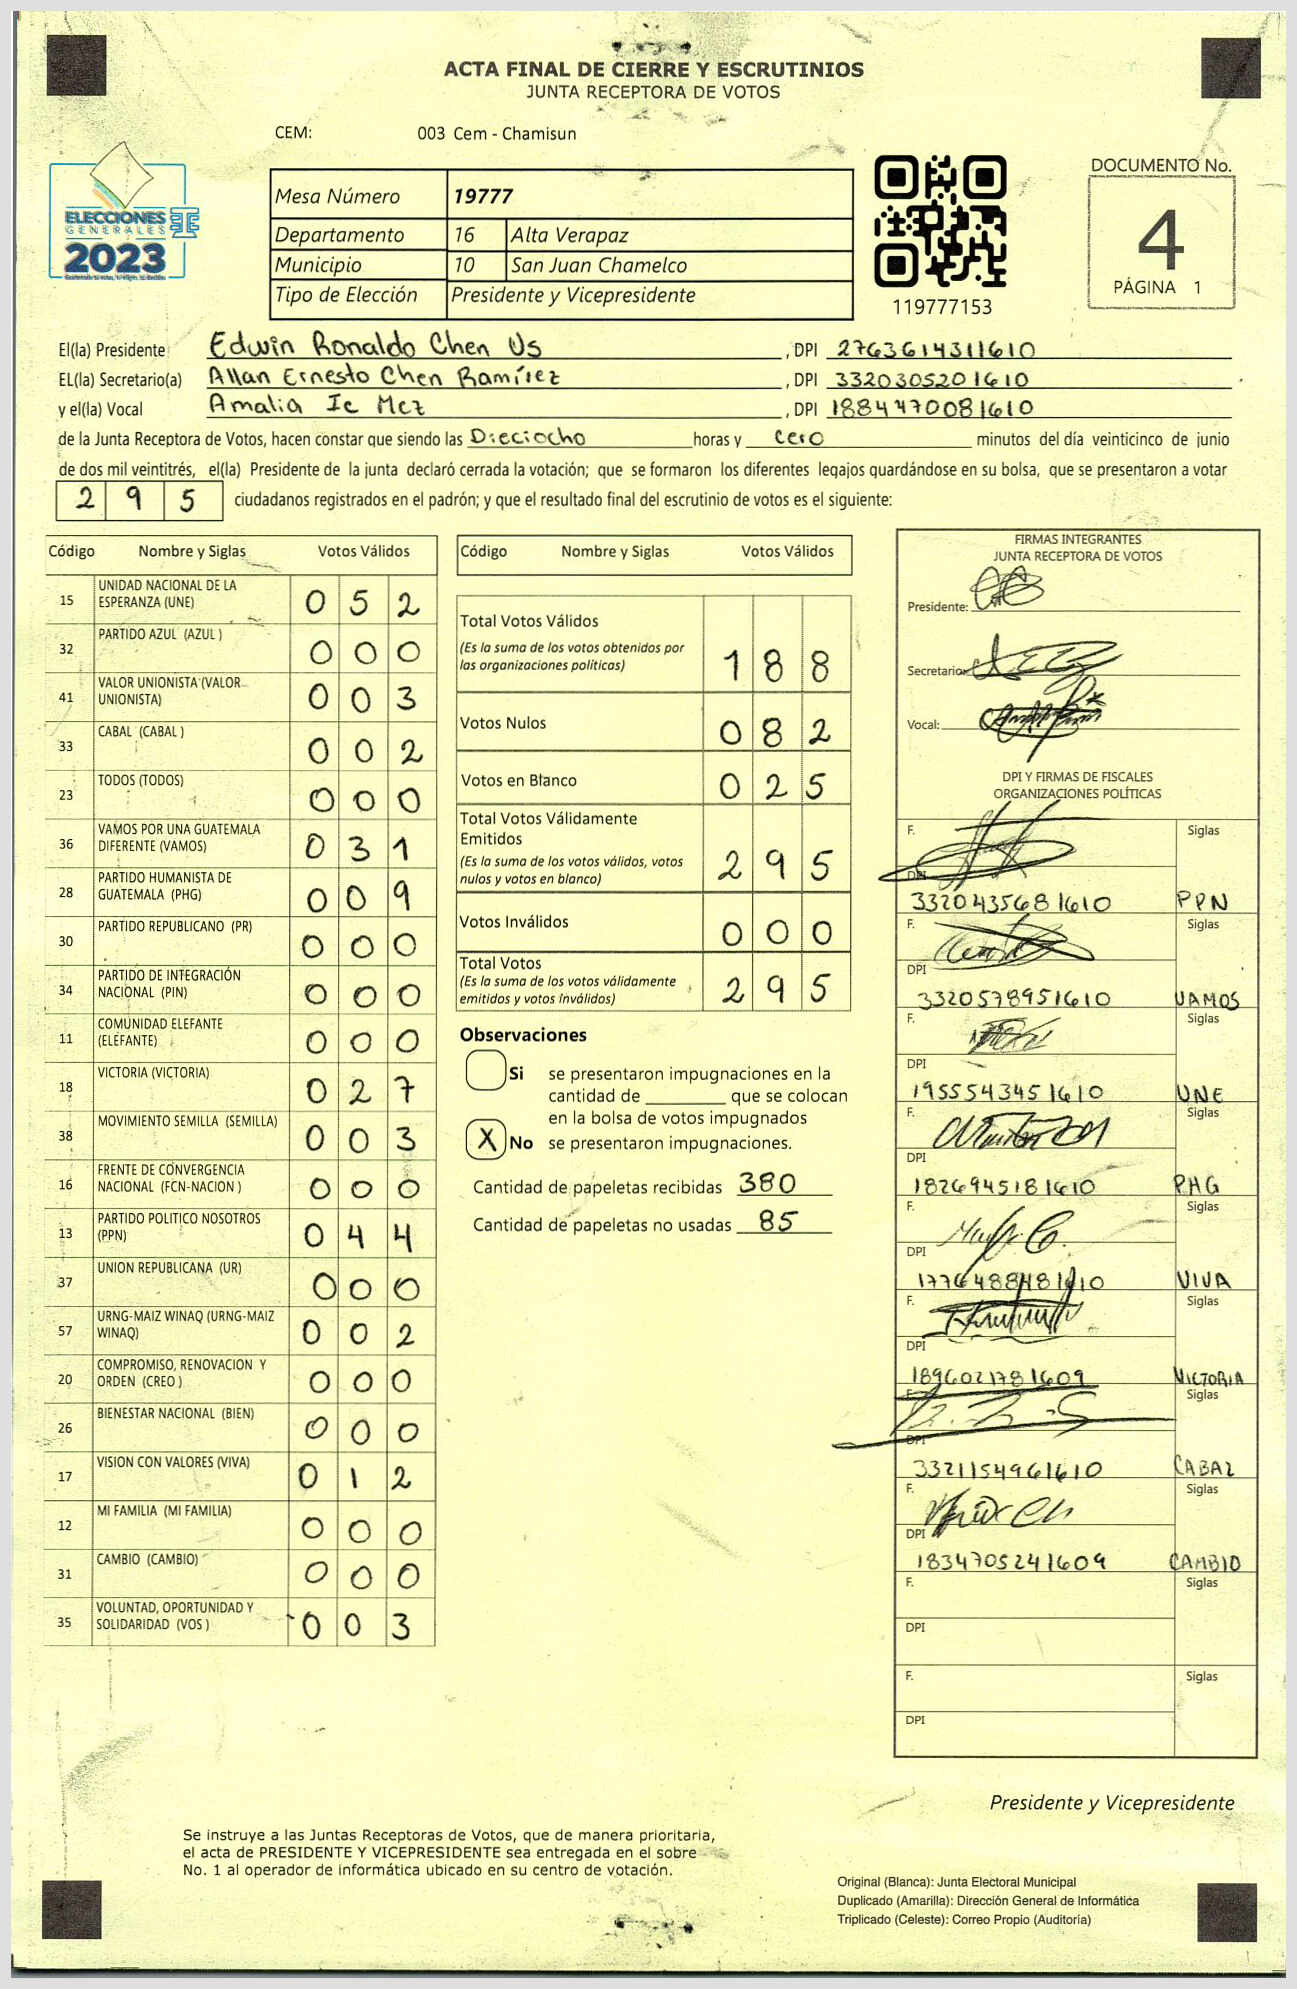 ACTA FINAL DE CIERRE Y ESCRUTINIOS
JUNTA RECEPTORA DE VOTOS
CEM: 003 Cem - Chamisun
ELECCIONES
GENERALES
2023
Mesa Número 19777
Departamento 16 Alta Verapaz
Municipio 10 San Juan Chamelco
Tipo de Elección Presidente y Vicepresidente
119777153
DOCUMENTO No.
4
PÁGINA 1
El(la) Presidente Edwin Ronaldo Chen Us , DPI 2763614311610
EL(la) Secretario(a) Allan Ernesto Chen Ramírez , DPI 3320305201610
y el(la) Vocal Amalia Ic Mez , DPI 1884470081610
de la Junta Receptora de Votos, hacen constar que siendo las Dieciocho horas y cero minutos del día veinticinco de junio
de dos mil veintitrés, el(la) Presidente de la junta declaró cerrada la votación; que se formaron los diferentes legajos quardándose en su bolsa, que se presentaron a votar
295 ciudadanos registrados en el padrón; y que el resultado final del escrutinio de votos es el siguiente:
Código Nombre y Siglas Votos Válidos
15 UNIDAD NACIONAL DE LA
ESPERANZA (UNE) 052
32 PARTIDO AZUL (AZUL ) 000
41 VALOR UNIONISTA (VALOR
UNIONISTA) 003
33 CABAL (CABAL ) 002
23 TODOS (TODOS) 000
36 VAMOS POR UNA GUATEMALA
DIFERENTE (VAMOS) 031
28 PARTIDO HUMANISTA DE
GUATEMALA (PHG) 009
30 PARTIDO REPUBLICANO (PR) 000
34 PARTIDO DE INTEGRACIÓN
NACIONAL (PIN) 000
11 COMUNIDAD ELEFANTE
(ELEFANTE) 000
18 VICTORIA (VICTORIA) 027
38 MOVIMIENTO SEMILLA (SEMILLA) 003
16 FRENTE DE CONVERGENCIA
NACIONAL (FCN-NACION ) 000
13 PARTIDO POLITICO NOSOTROS
(PPN) 044
37 UNION REPUBLICANA (UR) 000
57 URNG-MAIZ WINAQ (URNG-MAIZ
WINAQ) 002
20 COMPROMISO, RENOVACION Y
ORDEN (CREO ) 000
26 BIENESTAR NACIONAL (BIEN) 000
17 VISION CON VALORES (VIVA) 012
12 MI FAMILIA (MI FAMILIA) 000
31 CAMBIO (CAMBIO) 000
35 VOLUNTAD, OPORTUNIDAD Y
SOLIDARIDAD (VOS ) 003
Código Nombre y Siglas Votos Válidos
Total Votos Válidos
(Es la suma de los votos obtenidos por
las organizaciones políticas) 188
Votos Nulos 082
Votos en Blanco 025
Total Votos Válidamente
Emitidos
(Es la suma de los votos válidos, votos
nulos y votos en blanco) 295
Votos Inválidos 000
Total Votos
(Es la suma de los votos válidamente
emitidos y votos inválidos) 295
Observaciones
Si se presentaron impugnaciones en la
cantidad de ________ que se colocan
en la bolsa de votos impugnados
X No se presentaron impugnaciones.
Cantidad de papeletas recibidas 380
Cantidad de papeletas no usadas 85
FIRMAS INTEGRANTES
JUNTA RECEPTORA DE VOTOS
Presidente:
Secretario:
Vocal:
DPI Y FIRMAS DE FISCALES
ORGANIZACIONES POLÍTICAS
F. Siglas
DPI
3320435681610 PPN
F. Siglas
DPI
3320578951610 VAMOS
F. Siglas
DPI
1955543451610 UNE
F. Siglas
DPI
1826945181610 PHG
F. Siglas
DPI
1776488481610 VIVA
F. Siglas
DPI
1896021781609 VICTORIA
F. Siglas
DPI
3321154961610 CABAL
F. Siglas
DPI
1834705241609 CAMBIO
F. Siglas
DPI
F. Siglas
DPI
Presidente y Vicepresidente
Se instruye a las Juntas Receptoras de Votos, que de manera prioritaria,
el acta de PRESIDENTE Y VICEPRESIDENTE sea entregada en el sobre
No. 1 al operador de informática ubicado en su centro de votación.
Original (Blanca): Junta Electoral Municipal
Duplicado (Amarilla): Dirección General de Informática
Triplicado (Celeste): Correo Propio (Auditoría)